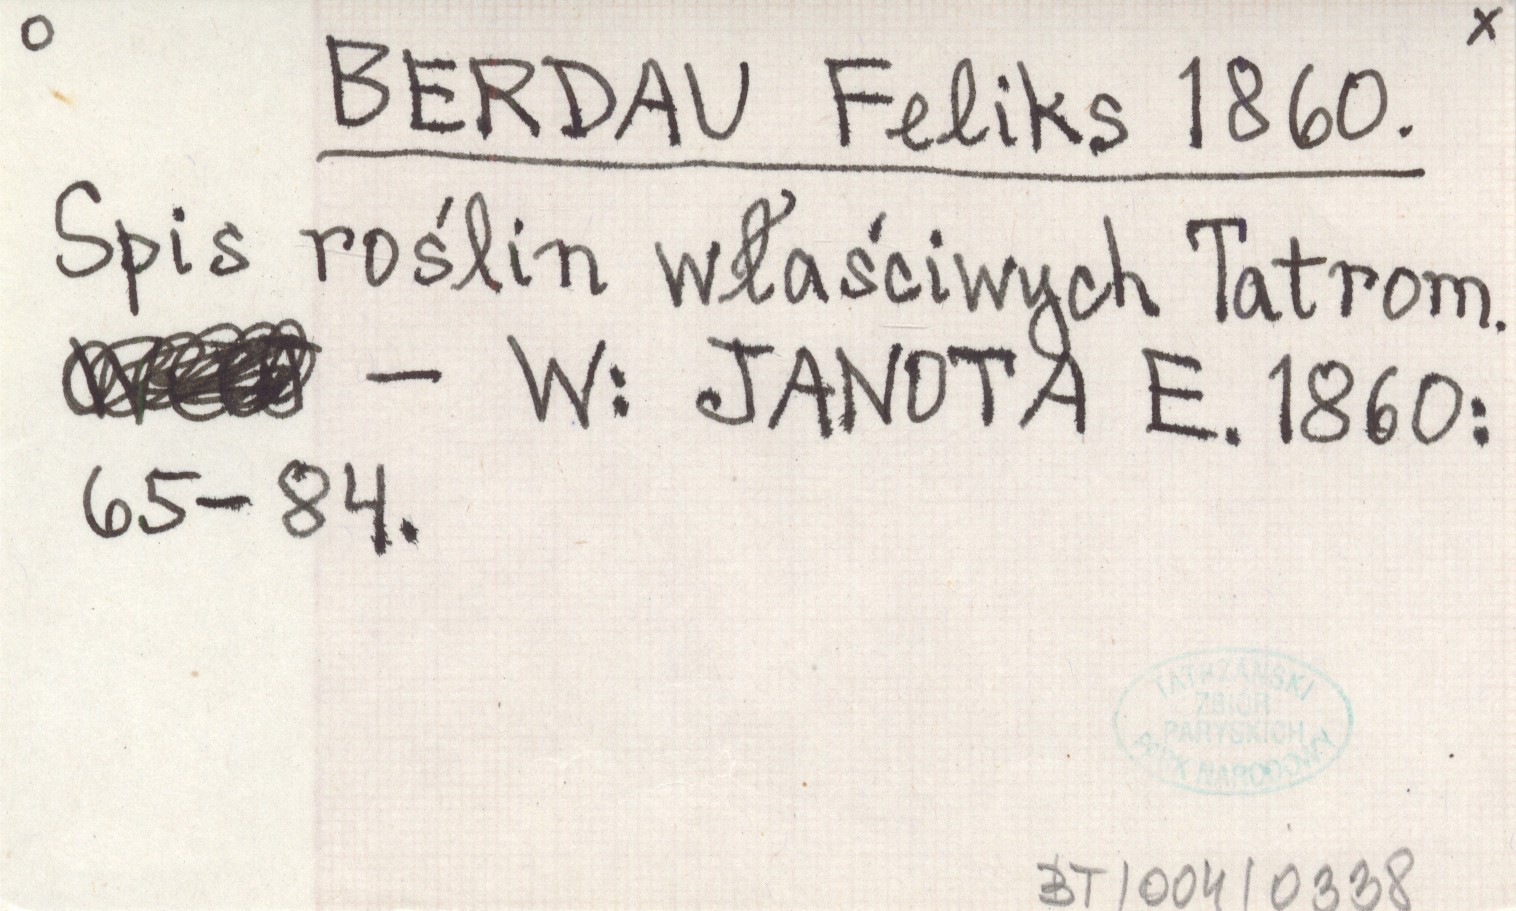 O
X
BERDAU Feliks 1860.
Spis roślin właściwych Tatrom.
— W: JANOTA E. 1860:
65–84.
TATRZAŃSKI
ZBIÓR
PARYSKICH
PARK NARODOWY
BT/004/0338